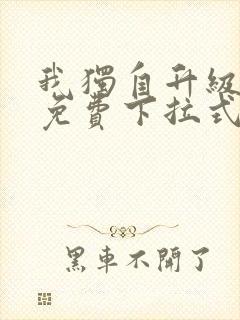 我獨自升級
免費下拉式
黑車不開了